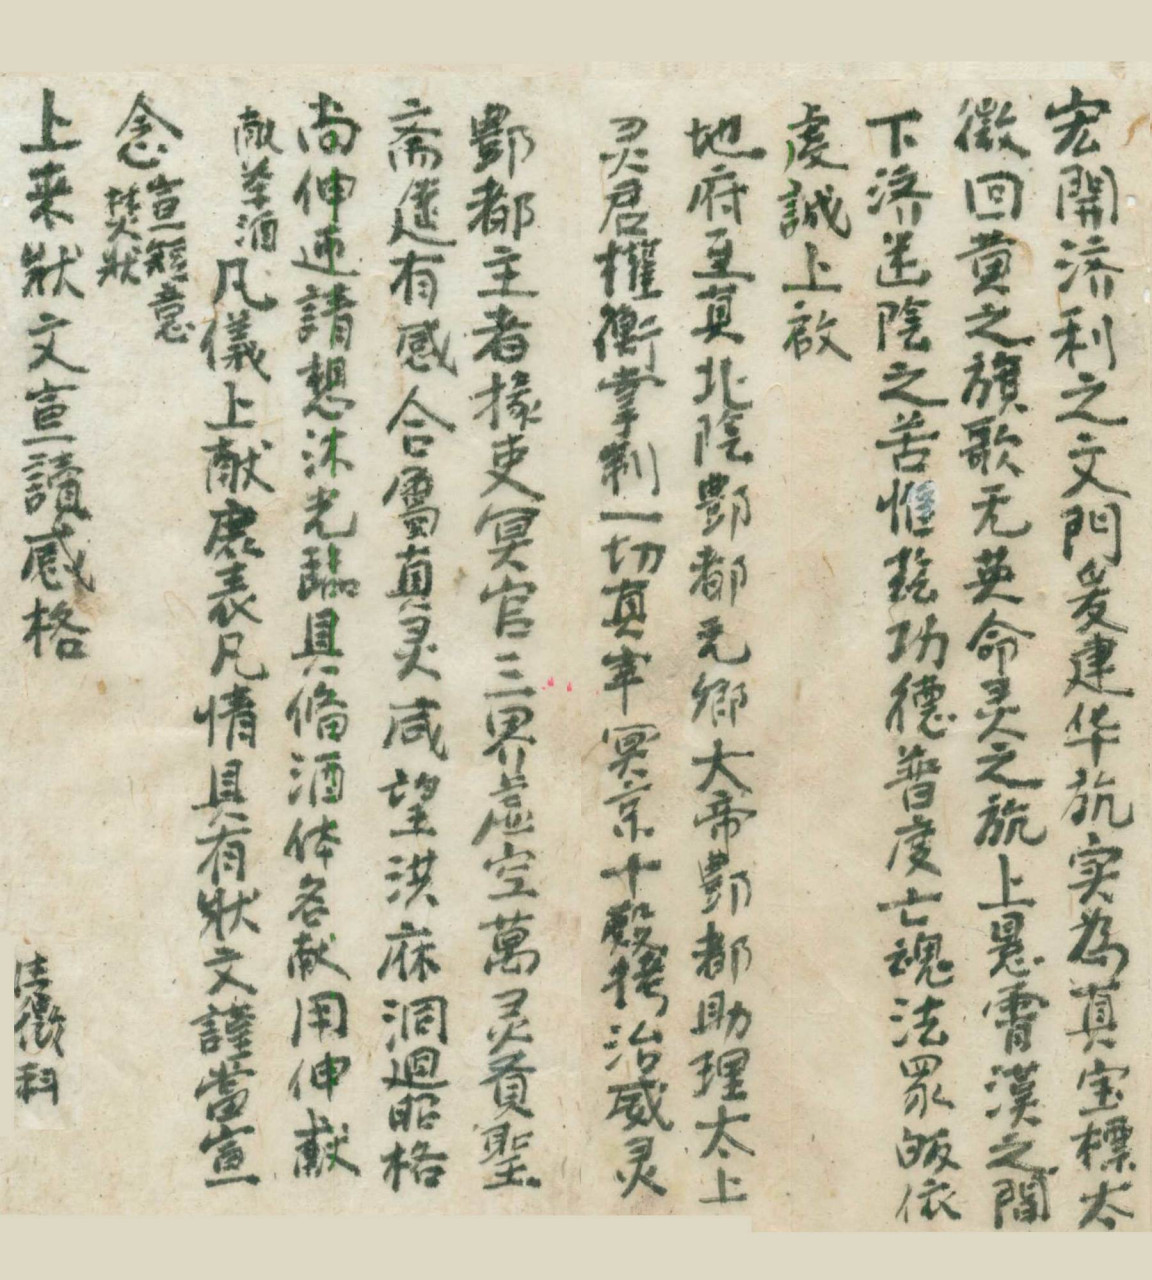 宏開济利之文門爰建华旐实為真宝標太
徽回黄之旗歌无英命灵之旐上悬霄漢之間
下济迷陰之苦惟兹功德普度亡魂法眾皈依
虔誠上啟
地府至真北陰酆都元卿大帝酆都助理太上
灵君權衡掌判一切真宰冥京十殿拷治威灵
酆都主者掾吏冥官三界虚空萬灵賁聖
斋筵有感合属真灵咸望洪庥洞迴昭格
尚伸迎請想沐光臨具俻酒体各献用伸献
献茶酒凡儀上献鹿表凡情具有狀文謹當宣
念宣短意焚狀
上来狀文宣讀感格
法徽科